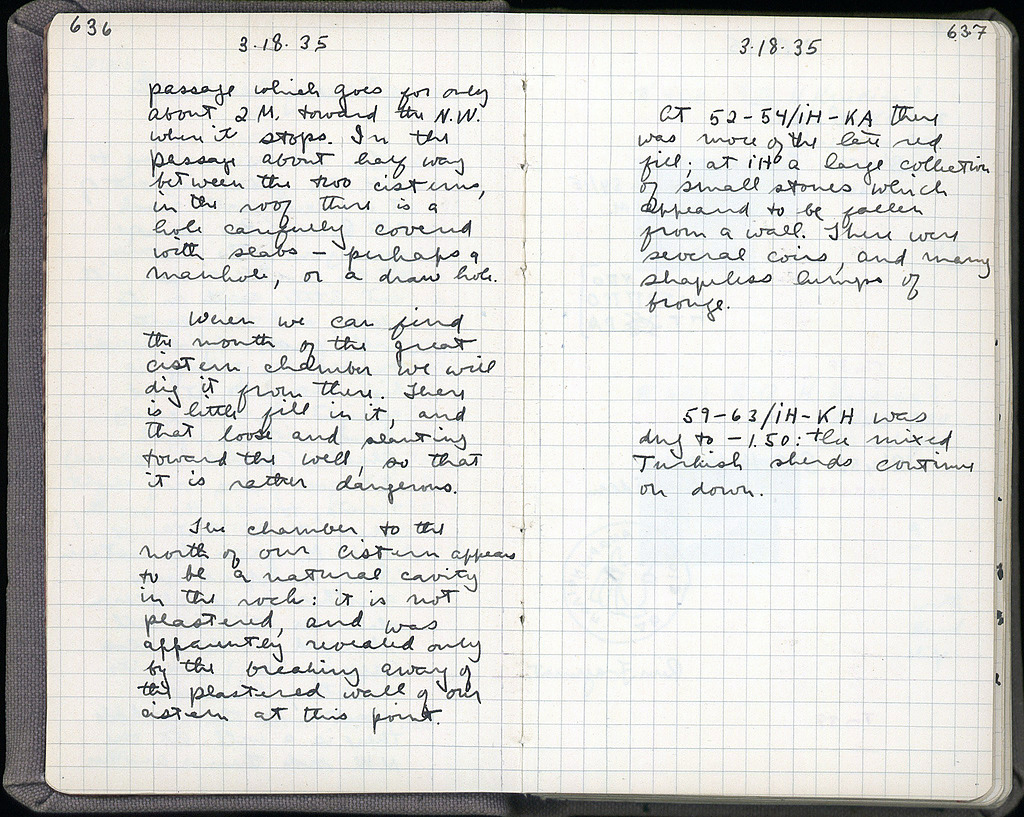 636
3·18·35
passage which goes for only
about 2 M. toward the N.W.
when it stops. In the
passage about half way
between the two cisterns,
in the roof there is a
hole carefully covered
with slabs – perhaps a
manhole, or a draw hole.
When we can find
the mouth of the great
cistern chamber we will
dig it from there. There
is little fill in it, and
that loose and slanting
toward the well, so that
it is rather dangerous.
The chamber to the
north of our cistern appears
to be a natural cavity
in the rock: it is not
plastered, and was
apparently revealed only
by the breaking away of
the plastered wall of our
cistern at this point.
637
3·18·35
At 52-54/iH-KA there
was more of the late red
fill; at iH a large collection
of small stones which
appeared to be fallen
from a wall. There were
several coins, and many
shapeless lumps of
bronze.
59-63/iH-KH was
dug to -1.50: the mixed
Turkish sherds continue
on down.